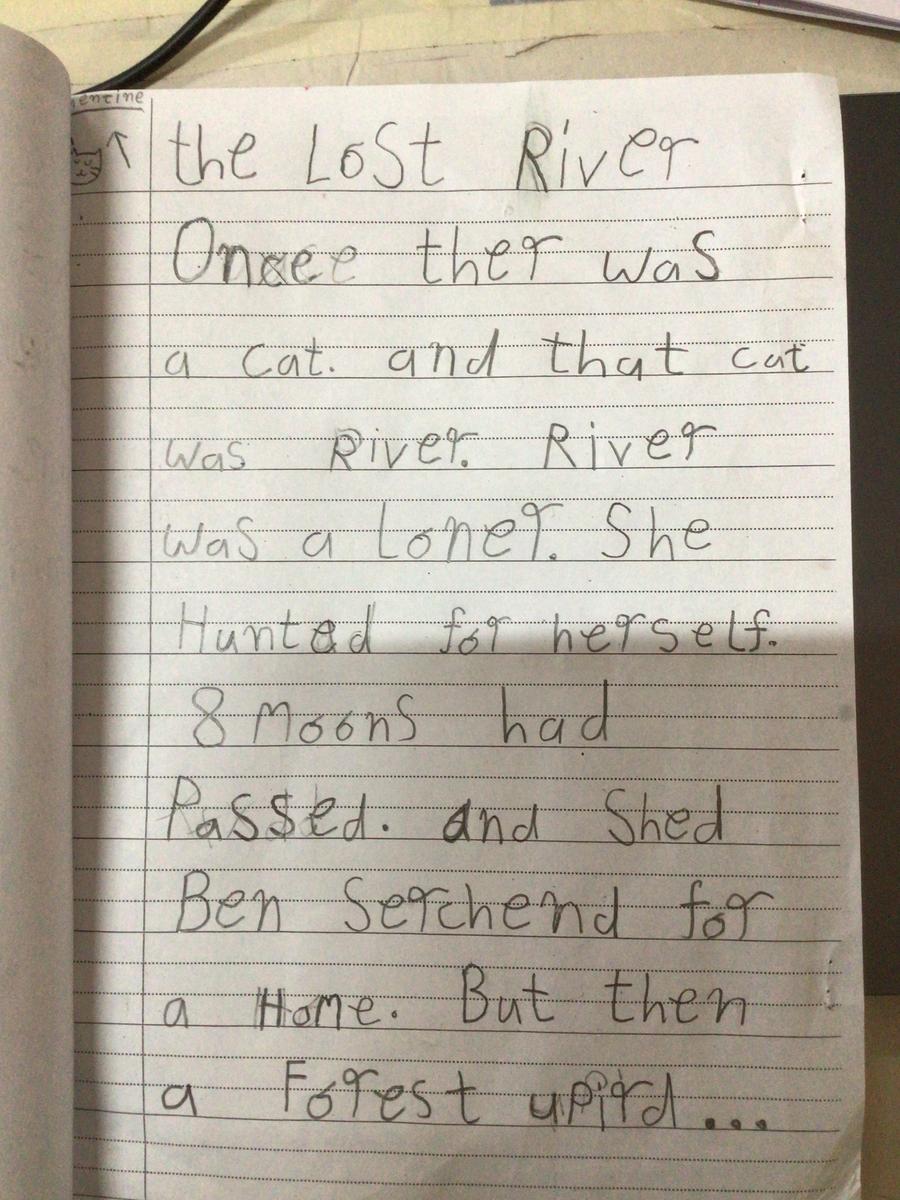 the Lost River
Oncee ther was
a cat. and that cat
was River. River
was a Loner. She
Hunted for herself.
8 Moons had
Passed. and Shed
Ben Serchend for
a Home. But then
a Forest upird...